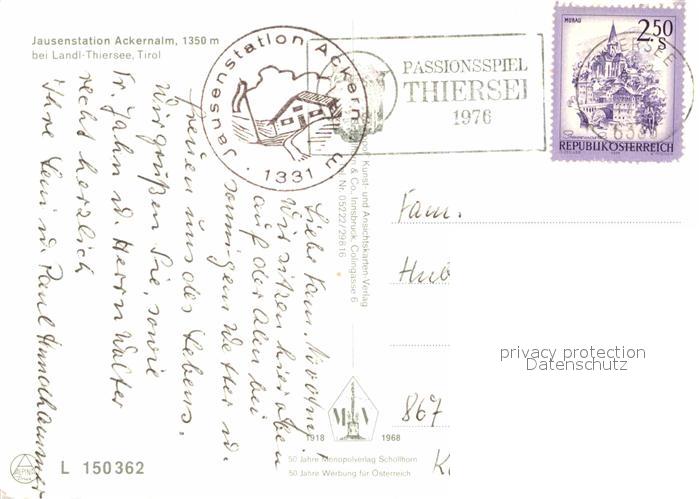 Jausenstation Ackernalm, 1350 m
bei Landl-Thiersee, Tirol
Jausenstation Ackern
· 1331 m ·
PASSIONSSPIEL
THIERSEE
1976
MURAU
2.50
S
REPUBLIK ÖSTERREICH
Liebe Fam.
Wir sitzen hier oben
auf der Alm bei
sonnigem Wetter u.
freuen uns des Lebens.
Wir grüßen Sie, sowie
Fr. Jahn u. Herrn Walter
recht herzlich
Ihre Leni u. Paul
Kunst- und Ansichtskarten-Verlag
& Co. Innsbruck, Colingasse 6
Nr. 05222/29816
Fam.
Hub
867
K
privacy protection
Datenschutz
1918 1968
50 Jahre Monopolverlag Schöllhorn
50 Jahre Werbung für Österreich
L 150362